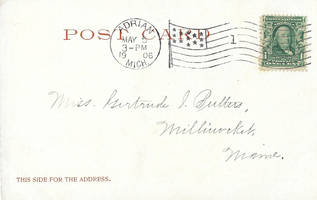 POST CARD
ADRIAN
MAY
3-PM
19 06
MICH.
1
Miss. Gertrude I. Butters,
Millinocket,
Maine.
THIS SIDE FOR THE ADDRESS.